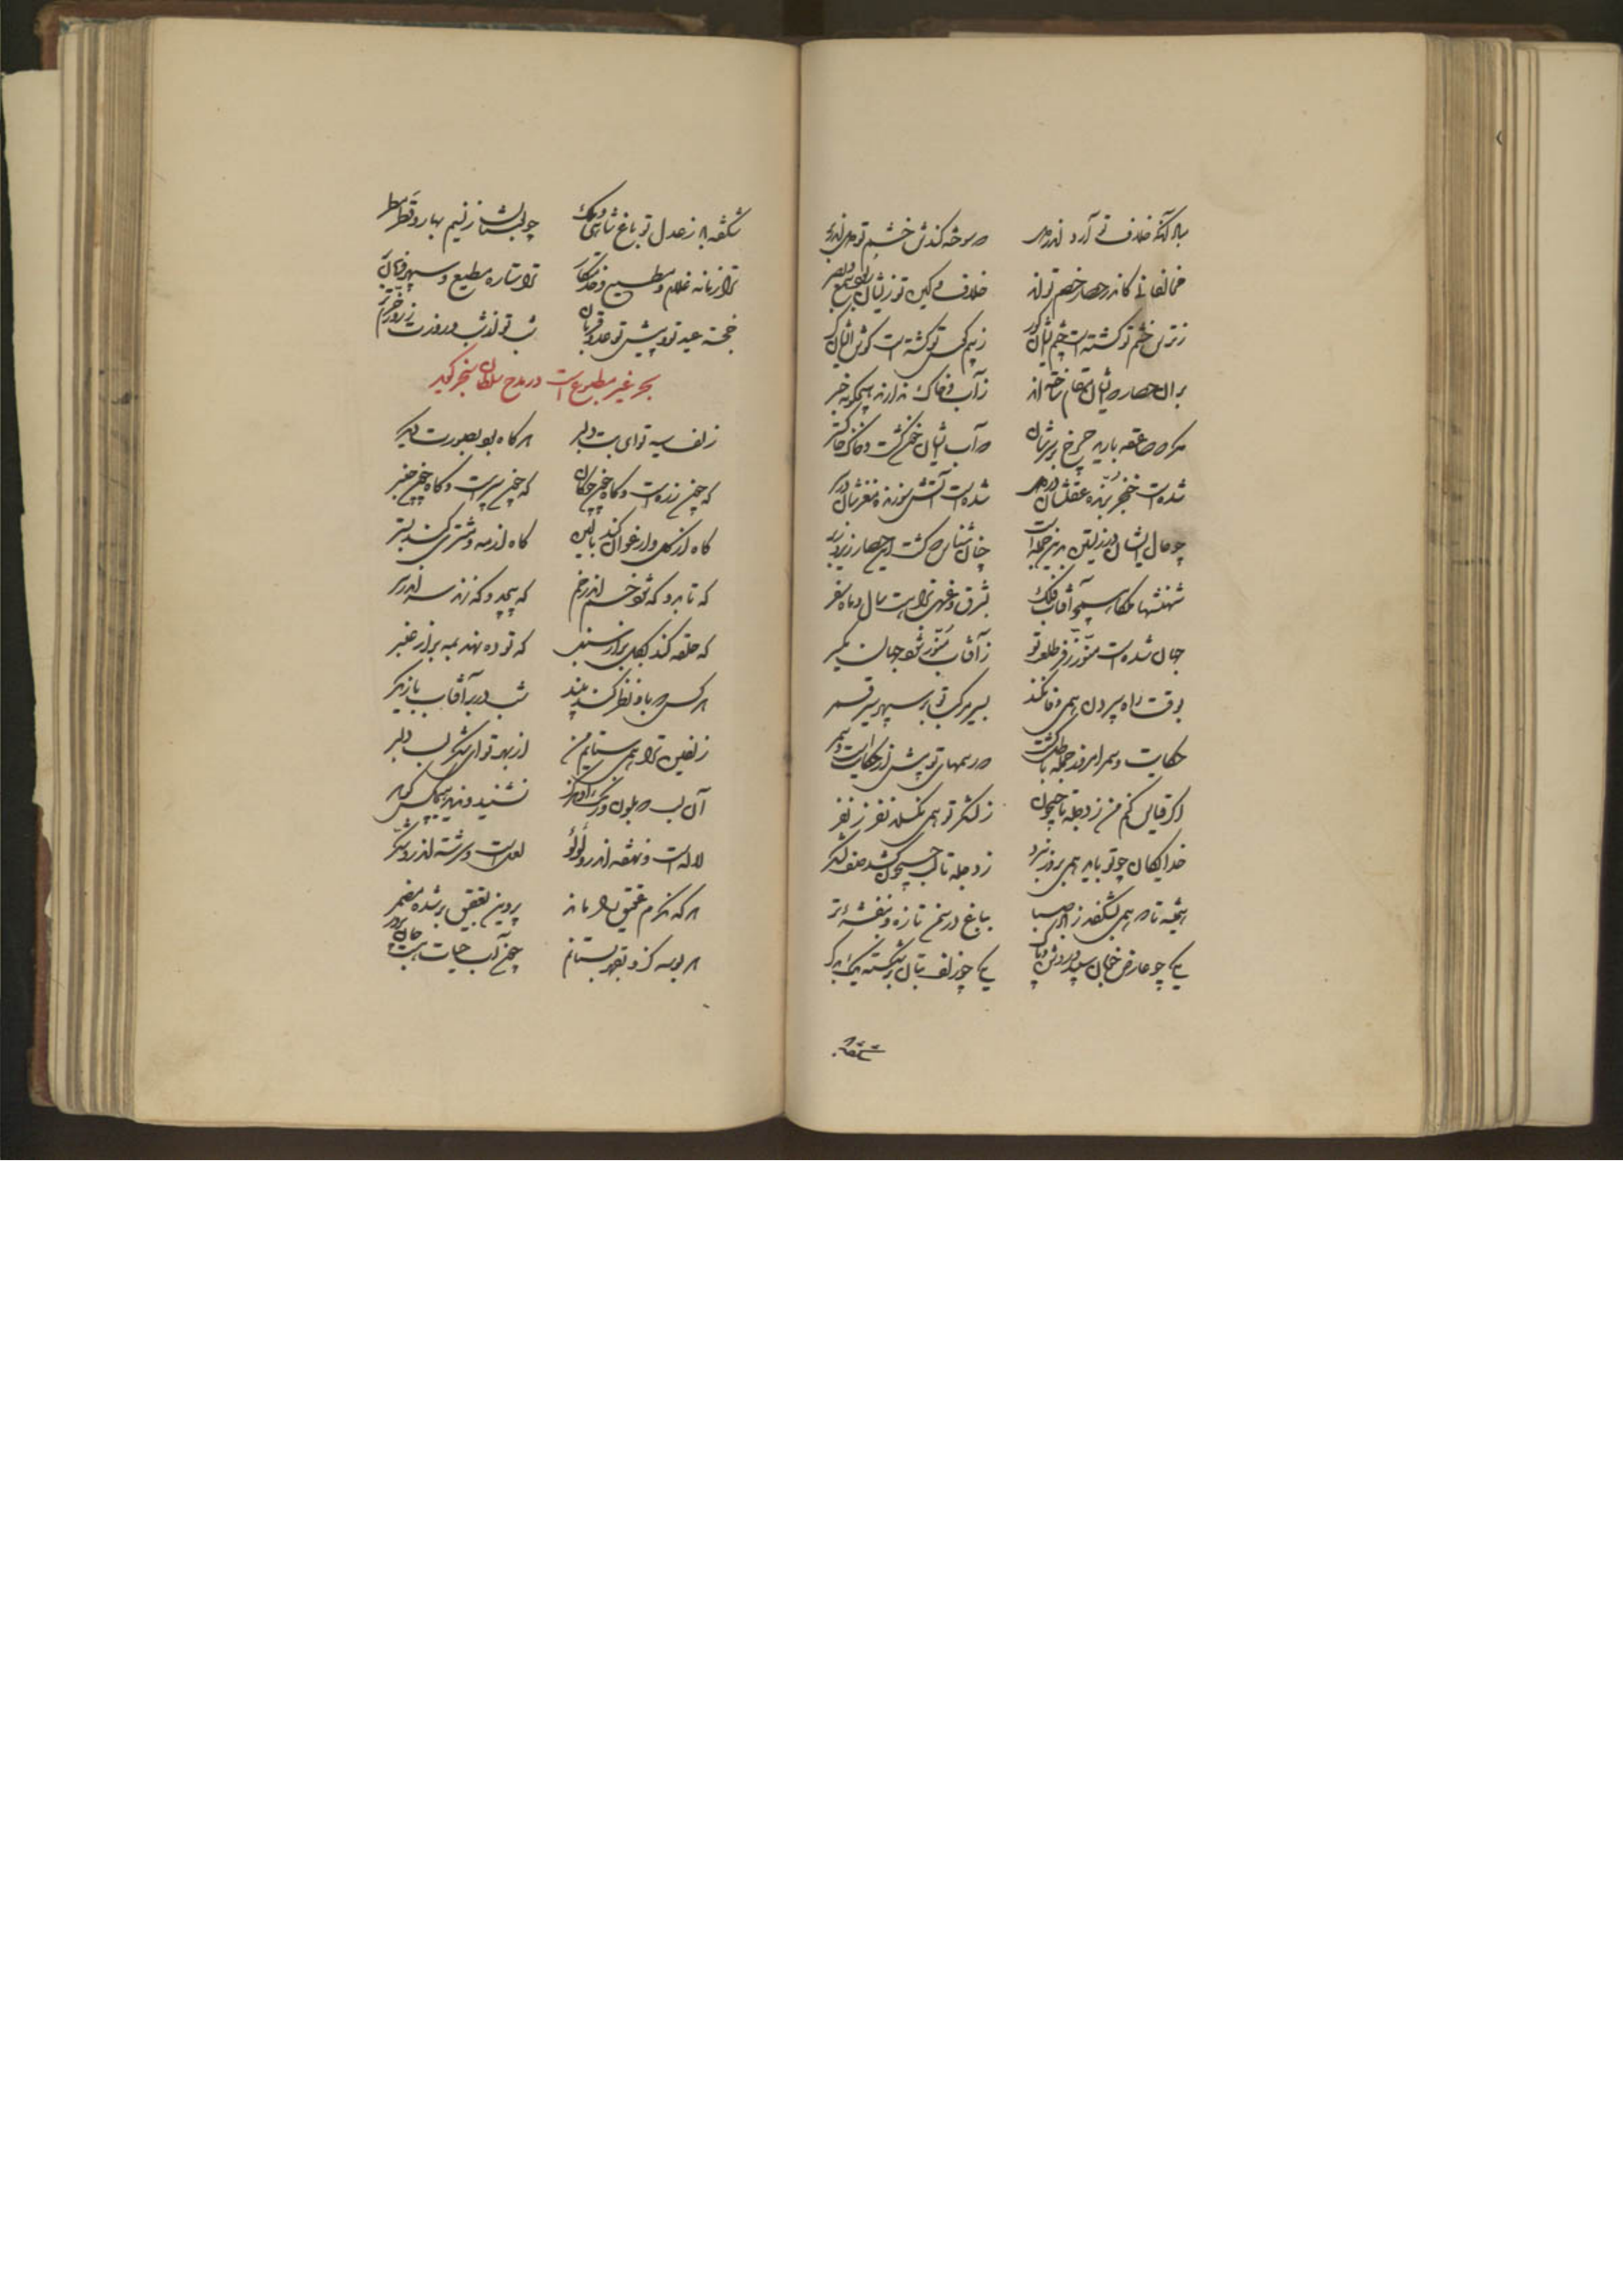 هر آنکه خلاف تو آرد اندر دل که سوخته کندش خشم تو دل اندر بر
مخالفانی کاندر حصار خصم تواند خلاف و کین تو زیشان ربود سمع و بصر
ز ترس خشم تو گشته است چشم ایشان کور ز بیم کوس تو گشته است گوش ایشان کر
بر آن حصار که ایشان مقام ساخته‌اند ز آب و خاک ندارند هیچگونه خبر
مگر که صاعقه بارید چرخ بر سرشان که آب ایشان خون گشت و خاک خاکستر
شده است خنجر برنده عقلشان در دل شده است آتش سوزنده مغزشان در سر
چو حال ایشان در زیستن بدین جمله است چنان شناس که گشت آن حصار زیر و زبر
شهنشها ملکا همچو آفتاب فلک بشرق و غرب تراهست سال و ماه سفر
جهان شده است منور ز فر طلعت تو ز آفتاب منور شود جهان یکسر
بوقت راه سپردن همی وفا نکند بسیر مرکب تو بر سپهر سیر قمر
حکایت و سمر امروز جمله باطل گشت که رسمهای تو بیش از حکایت است و سمر
اگر قیاس کنم من ز دجله تا جیحون ز لشکر تو همی نگسلد نفر ز نفر
خدایگان چو تو باید همی بروز نبرد ز دجله تا لب جیحون کشیده صف لشکر
همیشه تا که همی بشکفد ز باد صبا بباغ در سمن تازه و بنفشه تر
یکی چو عارض خوبان سپید و روشن و پاک یکی چو زلف بتان بر شکسته یک بدگر
شکفته باد
شکفته باد ز عدل تو باغ شاهی و ملک چو بوستان ز نسیم بهار و قطر مطر
ترا زمانه غلام و مطیع و خدمتکار ترا ستاره مطیع و سپهر فرمان بر
خجسته عید تو و پیش تو عدو قربان شب تو از شب و روزت ز روز خرم‌تر
بحر غیر مطبوع است در مدح سلطان سنجر گوید
زلف سیه تو ای بت دلبر هر گاه بود بصورت دیگر
گه چون زره است و گاه چون چوگان گه چون سپر است و گاه چون چنبر
گاه از گل و ارغوان کند بالین گاه از مه و مشتری کند بستر
گه تابد و گه شود خم اندر خم گه پیچد و گه زند سر اندر سر
گه حلقه کند بگل بر از سنبل گه توده نهد بمه بر از عنبر
هر کس که بدو نظر کند بیند شب در بر آفتاب بازیگر
زلفین ترا همی ستایم من از بهر تو ای شکر لب دلبر
آن لب که بلون و رنگ او هرگز نشنید و ندید هیچکس گوهر
لاله است و نهفته اندرو لؤلؤ لعل است و سرشته اندرو شکر
هر گه نگرم عقیق را ماند پروین بعقیق بر شده مضمر
هر بوسه کزو بقهر بستانم چون آب حیات هست جان پرور